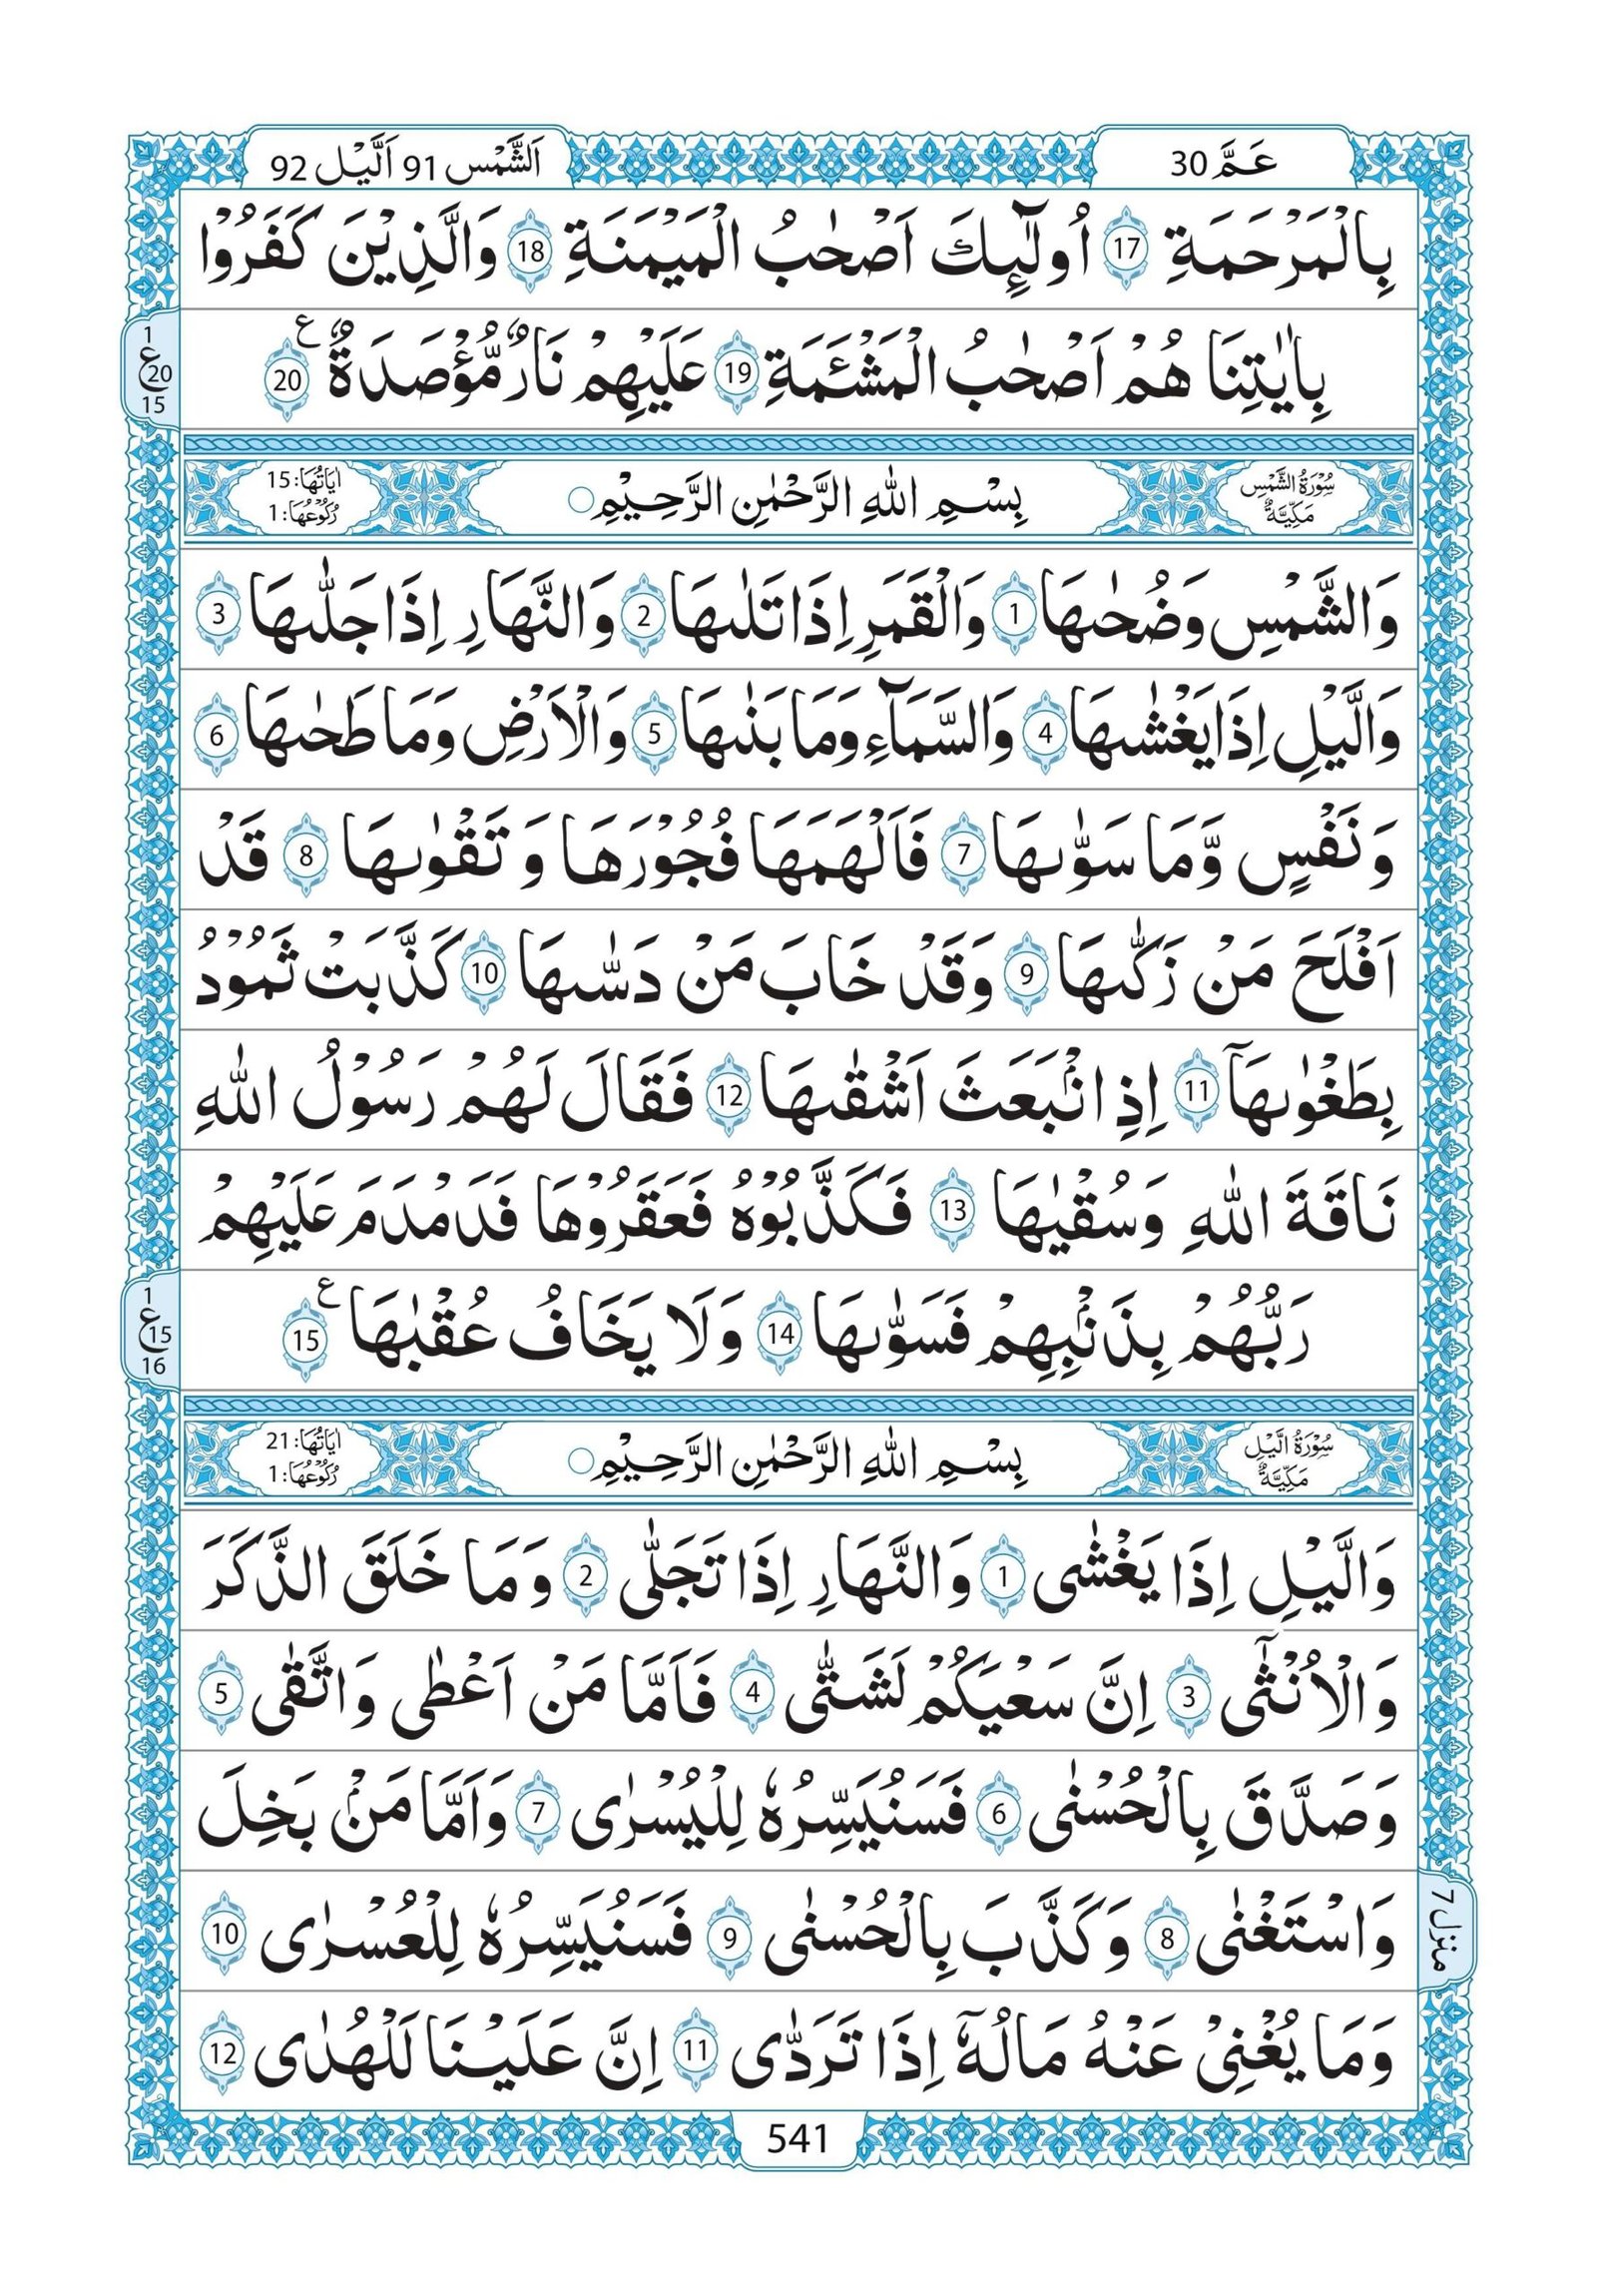 عَمَّ 30
اَلشَّمْس 91 اَلَّيْل 92
بِالْمَرْحَمَةِ 17 اُولٰٓئِكَ اَصْحٰبُ الْمَيْمَنَةِ 18 وَالَّذِيْنَ كَفَرُوْا
بِاٰيٰتِنَا هُمْ اَصْحٰبُ الْمَشْـَٔمَةِ 19 عَلَيْهِمْ نَارٌ مُّؤْصَدَةٌ 20 ع
1
ع 20
15
سُوْرَةُ الشَّمْسِ
مَكِّيَّةٌ
بِسْمِ اللّٰهِ الرَّحْمٰنِ الرَّحِيْمِ
اٰيَاتُهَا: 15
رُكُوْعُهَا: 1
وَالشَّمْسِ وَضُحٰىهَا 1 وَالْقَمَرِ اِذَا تَلٰىهَا 2 وَالنَّهَارِ اِذَا جَلّٰىهَا 3
وَالَّيْلِ اِذَا يَغْشٰىهَا 4 وَالسَّمَآءِ وَمَا بَنٰىهَا 5 وَالْاَرْضِ وَمَا طَحٰىهَا 6
وَنَفْسٍ وَّمَا سَوّٰىهَا 7 فَاَلْهَمَهَا فُجُوْرَهَا وَتَقْوٰىهَا 8 قَدْ
اَفْلَحَ مَنْ زَكّٰىهَا 9 وَقَدْ خَابَ مَنْ دَسّٰىهَا 10 كَذَّبَتْ ثَمُوْدُ
بِطَغْوٰىهَآ 11 اِذِ انْۢبَعَثَ اَشْقٰىهَا 12 فَقَالَ لَهُمْ رَسُوْلُ اللّٰهِ
نَاقَةَ اللّٰهِ وَسُقْيٰهَا 13 فَكَذَّبُوْهُ فَعَقَرُوْهَا فَدَمْدَمَ عَلَيْهِمْ
رَبُّهُمْ بِذَنْۢبِهِمْ فَسَوّٰىهَا 14 وَلَا يَخَافُ عُقْبٰهَا 15 ع
1
ع 15
16
سُوْرَةُ الَّيْلِ
مَكِّيَّةٌ
بِسْمِ اللّٰهِ الرَّحْمٰنِ الرَّحِيْمِ
اٰيَاتُهَا: 21
رُكُوْعُهَا: 1
وَالَّيْلِ اِذَا يَغْشٰى 1 وَالنَّهَارِ اِذَا تَجَلّٰى 2 وَمَا خَلَقَ الذَّكَرَ
وَالْاُنْثٰٓى 3 اِنَّ سَعْيَكُمْ لَشَتّٰى 4 فَاَمَّا مَنْ اَعْطٰى وَاتَّقٰى 5
وَصَدَّقَ بِالْحُسْنٰى 6 فَسَنُيَسِّرُهٗ لِلْيُسْرٰى 7 وَاَمَّا مَنْۢ بَخِلَ
وَاسْتَغْنٰى 8 وَكَذَّبَ بِالْحُسْنٰى 9 فَسَنُيَسِّرُهٗ لِلْعُسْرٰى 10
منزل 7
وَمَا يُغْنِيْ عَنْهُ مَالُهٗٓ اِذَا تَرَدّٰى 11 اِنَّ عَلَيْنَا لَلْهُدٰى 12
541